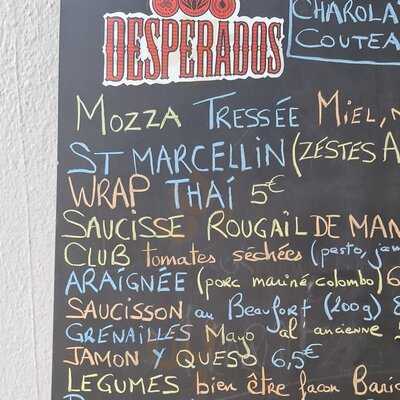 DESPERADOS
CHAROLA
COUTEA
MOZZA TRESSÉE MIEL,
ST MARCELLIN (ZESTES A
WRAP THAÍ 5€
SAUCISSE ROUGAIL DE MAN
CLUB tomates séchées (pesto, jam
ARAIGNÉE (porc mariné colombo) 6
SAUCISSON au Beaufort (200g) 8
GRENAILLES Mayo al'ancienne
JAMON Y QUESO 6,5€
LEGUMES bien être façon Baric